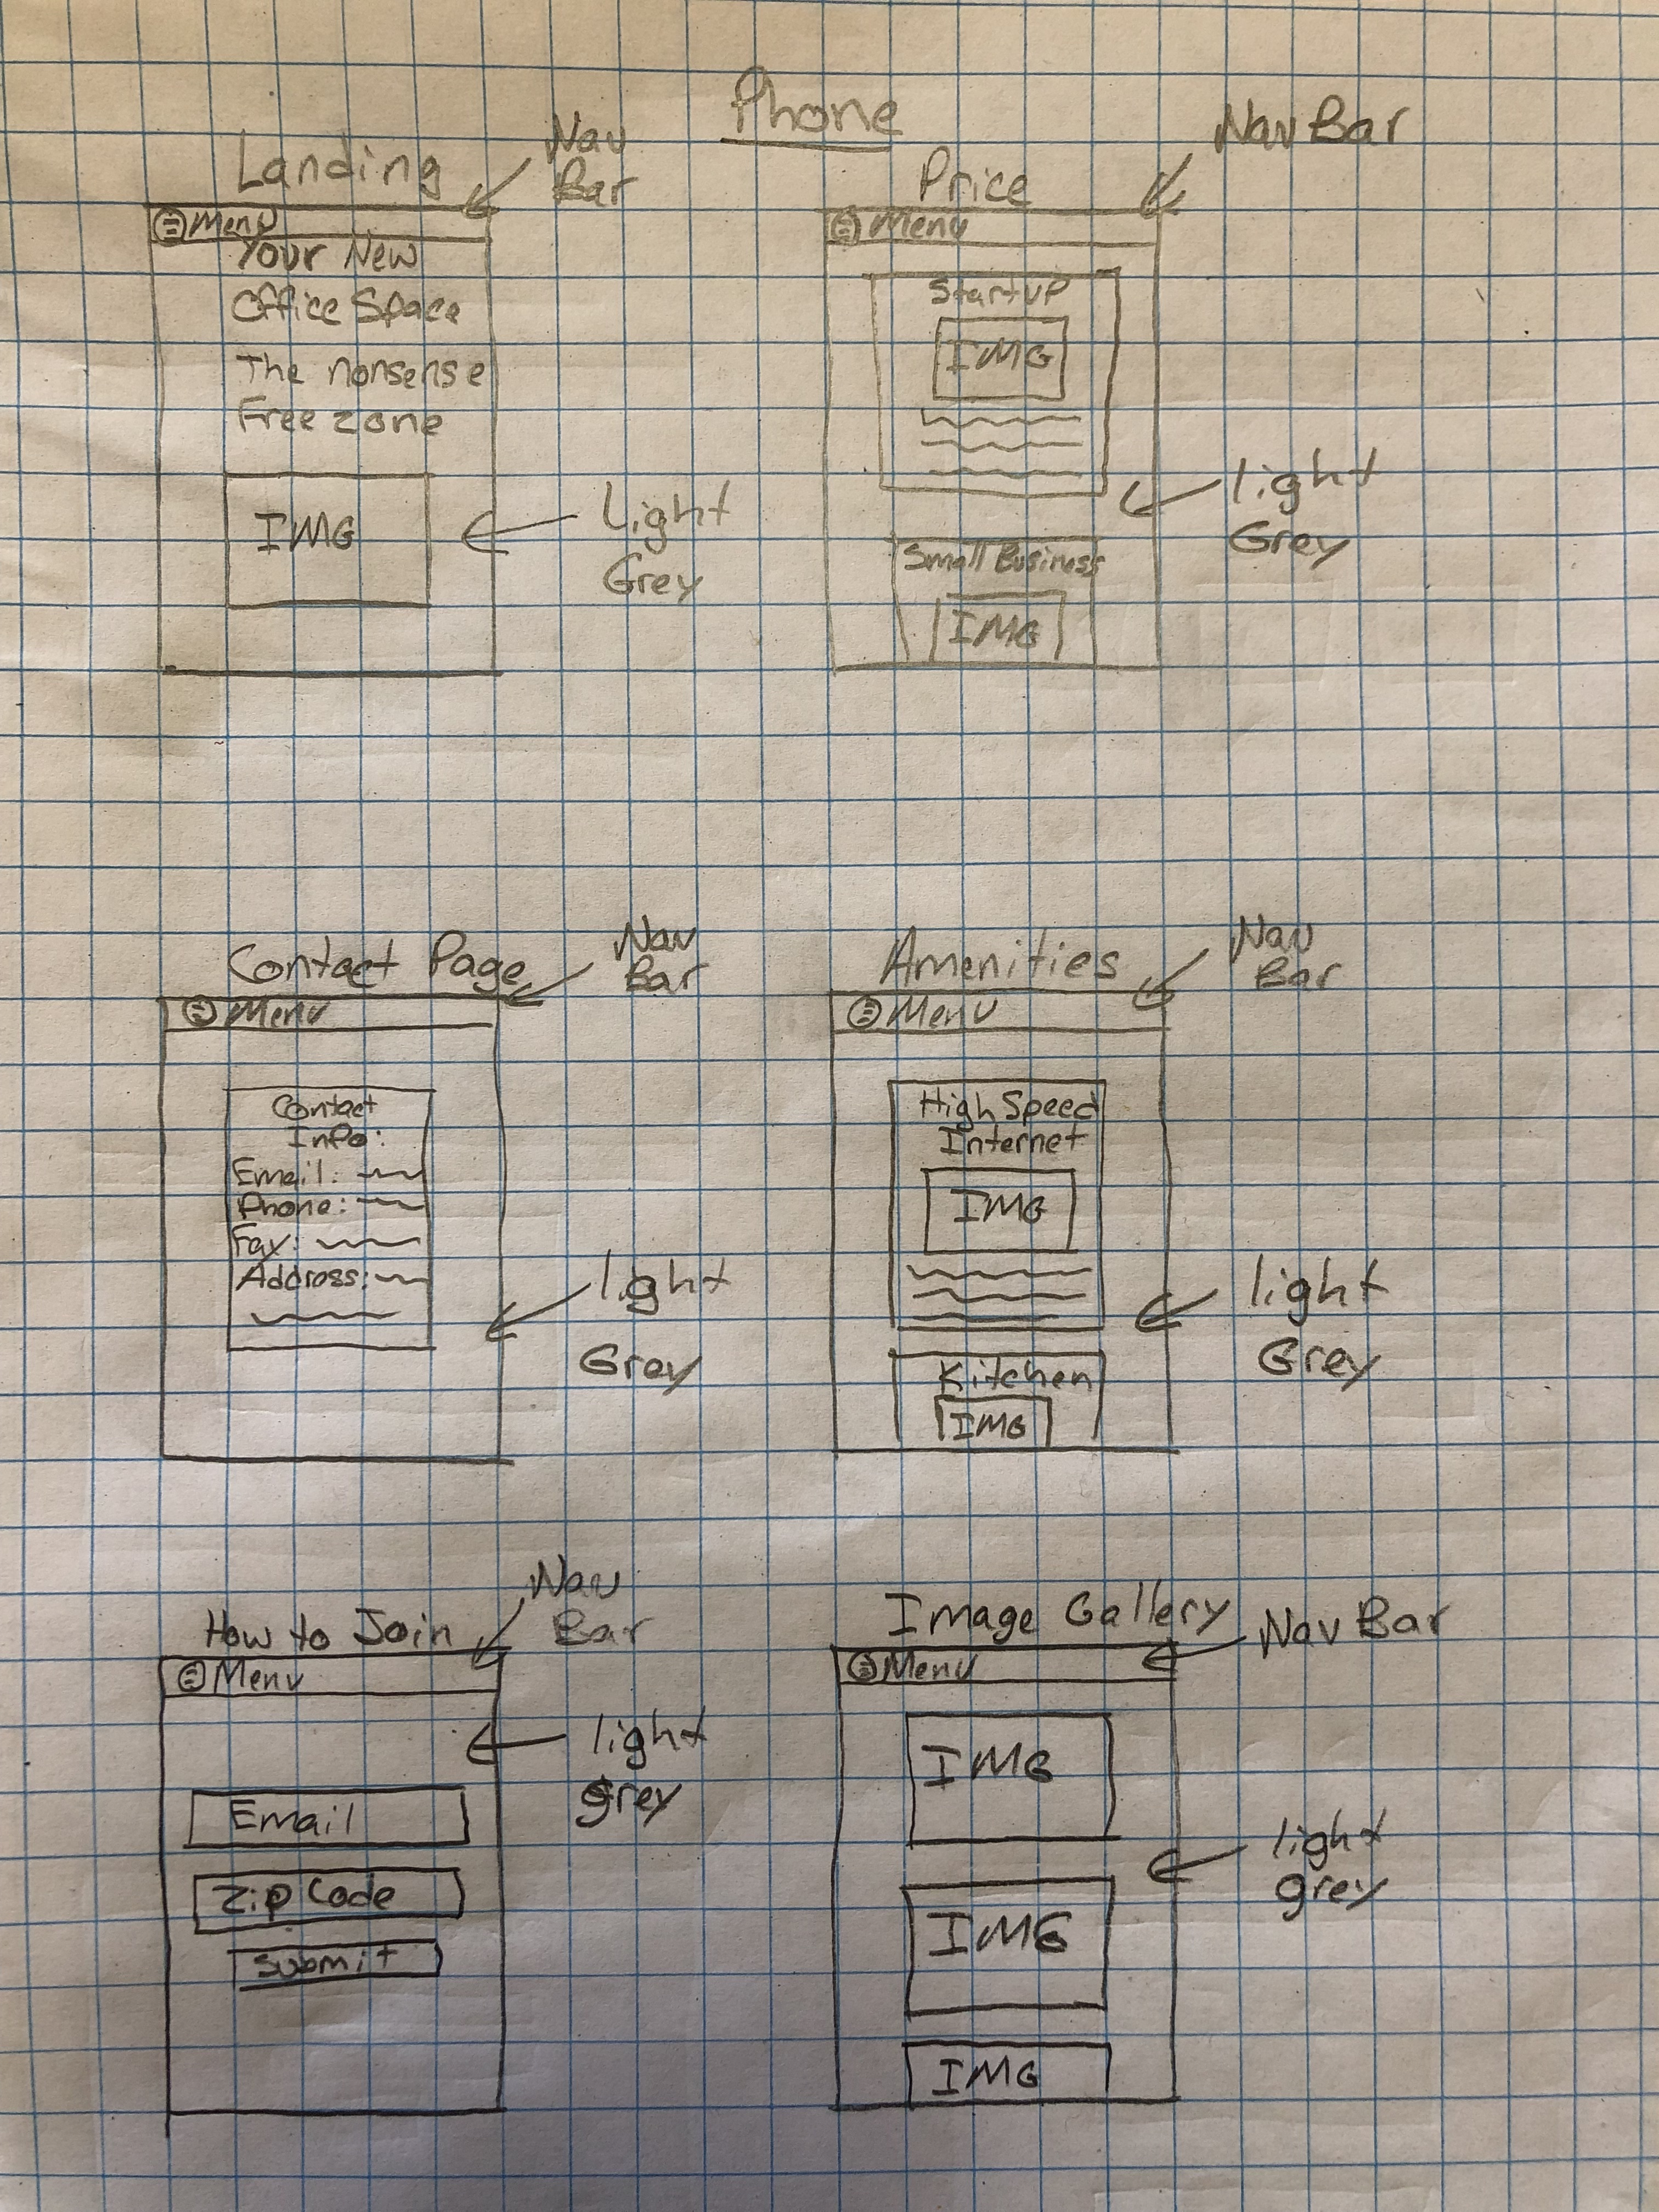 Phone
Landing
Nav
Bar
Menu
Your New
Office Space
The nonsense
Free zone
IMG
Light
Grey
Price
Nav Bar
Menu
Startup
IMG
light
Grey
Small Business
IMG
Contact Page
Nav
Bar
Menu
Contact
Info:
Email:
Phone:
Fax:
Address:
light
Grey
Amenities
Nav
Bar
Menu
High Speed
Internet
IMG
light
Grey
Kitchen
IMG
How to Join
Nav
Bar
Menu
light
grey
Email
Zip Code
Submit
Image Gallery
Nav Bar
Menu
IMG
light
grey
IMG
IMG